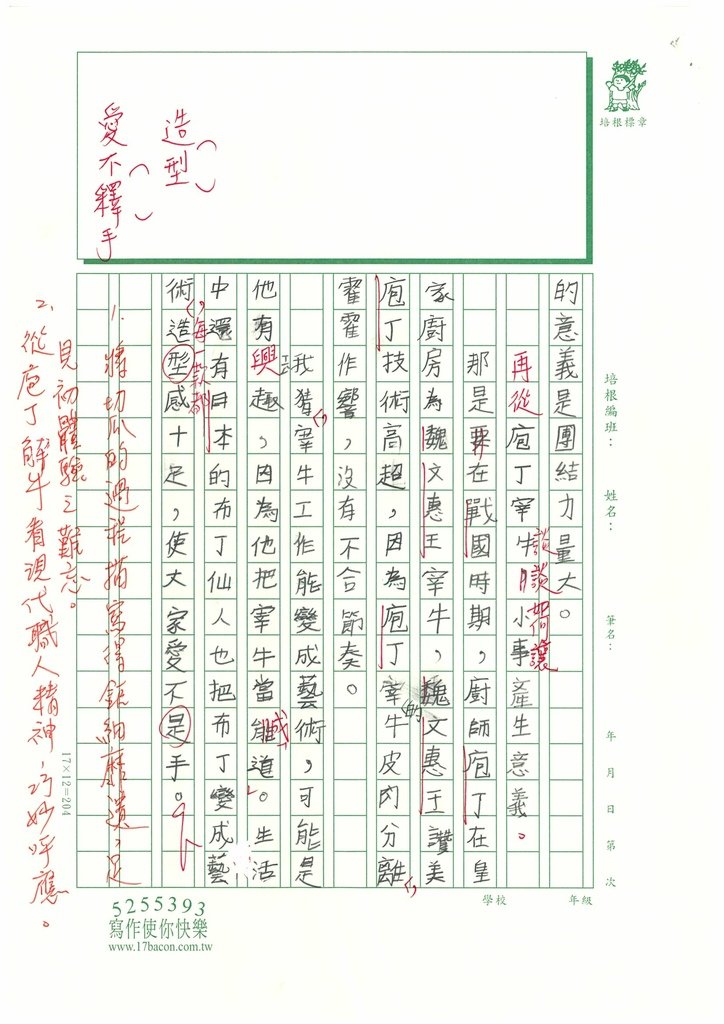 培根標章
造型
愛不釋手
培根編班：
姓名：
筆名：
年 月 日 第 次
學校
年級
的意義是團結力量大。
再從庖丁宰牛談談如何讓小事產生意義。
那是在戰國時期，廚師庖丁在皇
家廚房為魏文惠王宰牛，魏文惠王讚美
庖丁技術高超，因為庖丁宰牛(的)皮肉分離，
霍霍作響，沒有不合節奏。
我猜，宰牛工作能變成藝術，可能是
他有興趣，因為他把宰牛當成道。生活
中還有日本的布丁仙人也把布丁變成藝
術，每一款都造型感十足，使大家愛不是手。
1. 將切瓜的過程描寫得鉅細靡遺，足
見初體驗之難忘。
2. 從庖丁解牛看現代職人精神，巧妙呼應。
17×12=204
5255393
寫作使你快樂
www.17bacon.com.tw